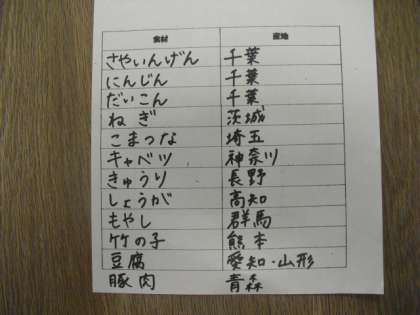 食材 産地
さやいんげん 千葉
にんじん 千葉
だいこん 千葉
ねぎ 茨城
こまつな 埼玉
キャベツ 神奈川
きゅうり 長野
しょうが 高知
もやし 群馬
竹の子 熊本
豆腐 愛知・山形
豚肉 青森